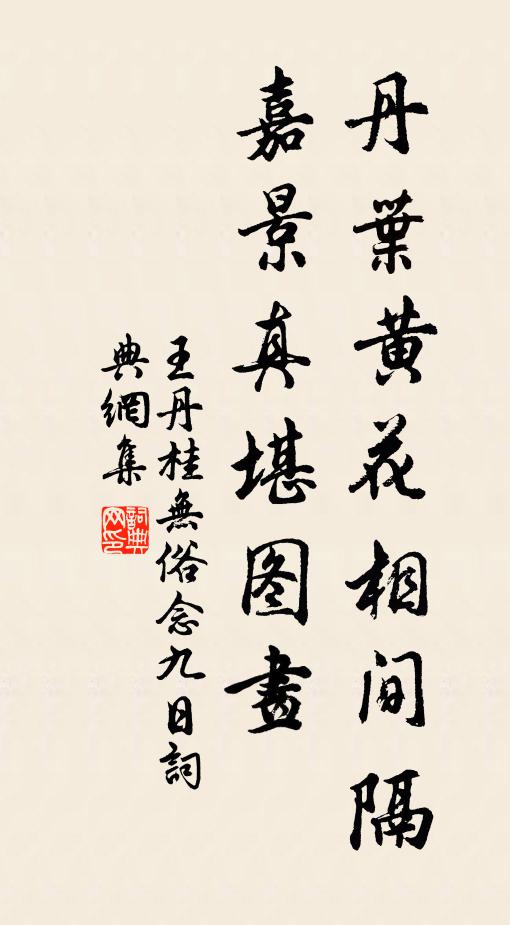 丹葉黄花相间隔
嘉景真堪图畫
王丹桂無俗念九日詞
典網集
詞典网印